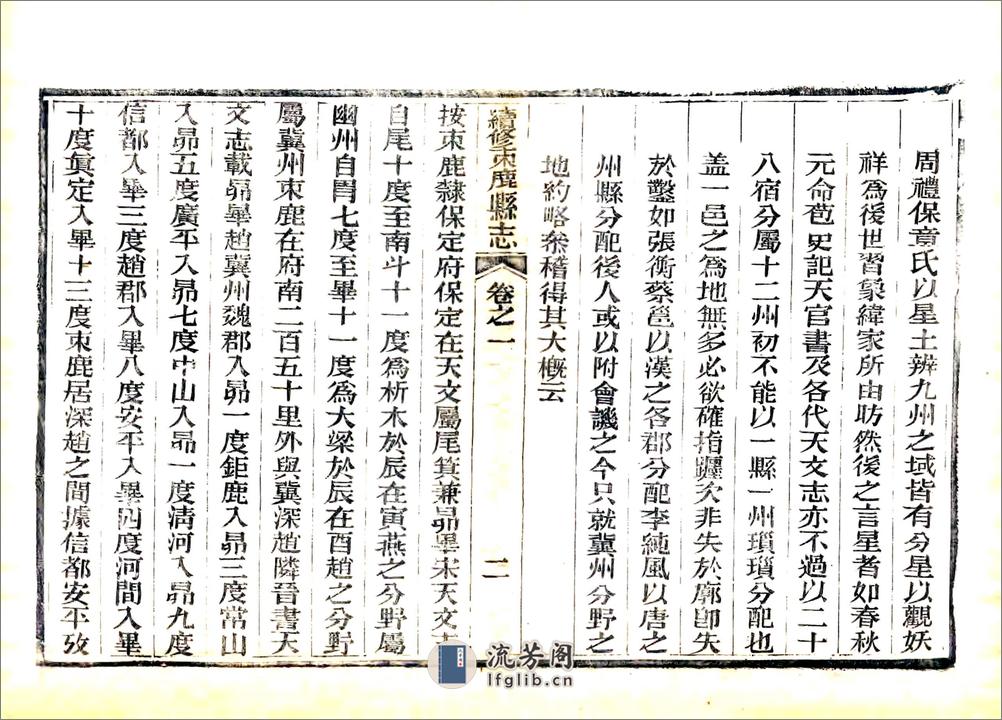 周禮保章氏以星土辨九州之域皆有分星以觀妖
祥為後世習象緯家所由昉然後之言星者如春秋
元命苞史記天官書及各代天文志亦不過以二十
八宿分屬十二州初不能以一縣一州瑣瑣分配也
盖一邑之為地無多必欲確指躔次非失於廓卽失
於鑿如張衡蔡邕以漢之各郡分配李純風以唐之
州縣分配後人或以附會譏之今只就冀州分野之
地約略叅稽得其大槪云
續修束鹿縣志 卷之一 二
按束鹿隸保定府保定在天文屬尾箕兼昴畢宋天文志
自尾十度至南斗十一度為析木於辰在寅燕之分野屬
幽州自胃七度至畢十一度為大梁於辰在酉趙之分野
屬冀州束鹿在府南二百五十里外與冀深趙隣晉書天
文志載昴畢趙冀州魏郡入昴一度鉅鹿入昴三度常山
入昴五度廣平入昴七度中山入昴一度淸河入昴九度
信都入畢三度趙郡入畢八度安平入畢四度河間入畢
十度眞定入畢十三度束鹿居深趙之間據信都安平攷
流芳阁
lfglib.cn